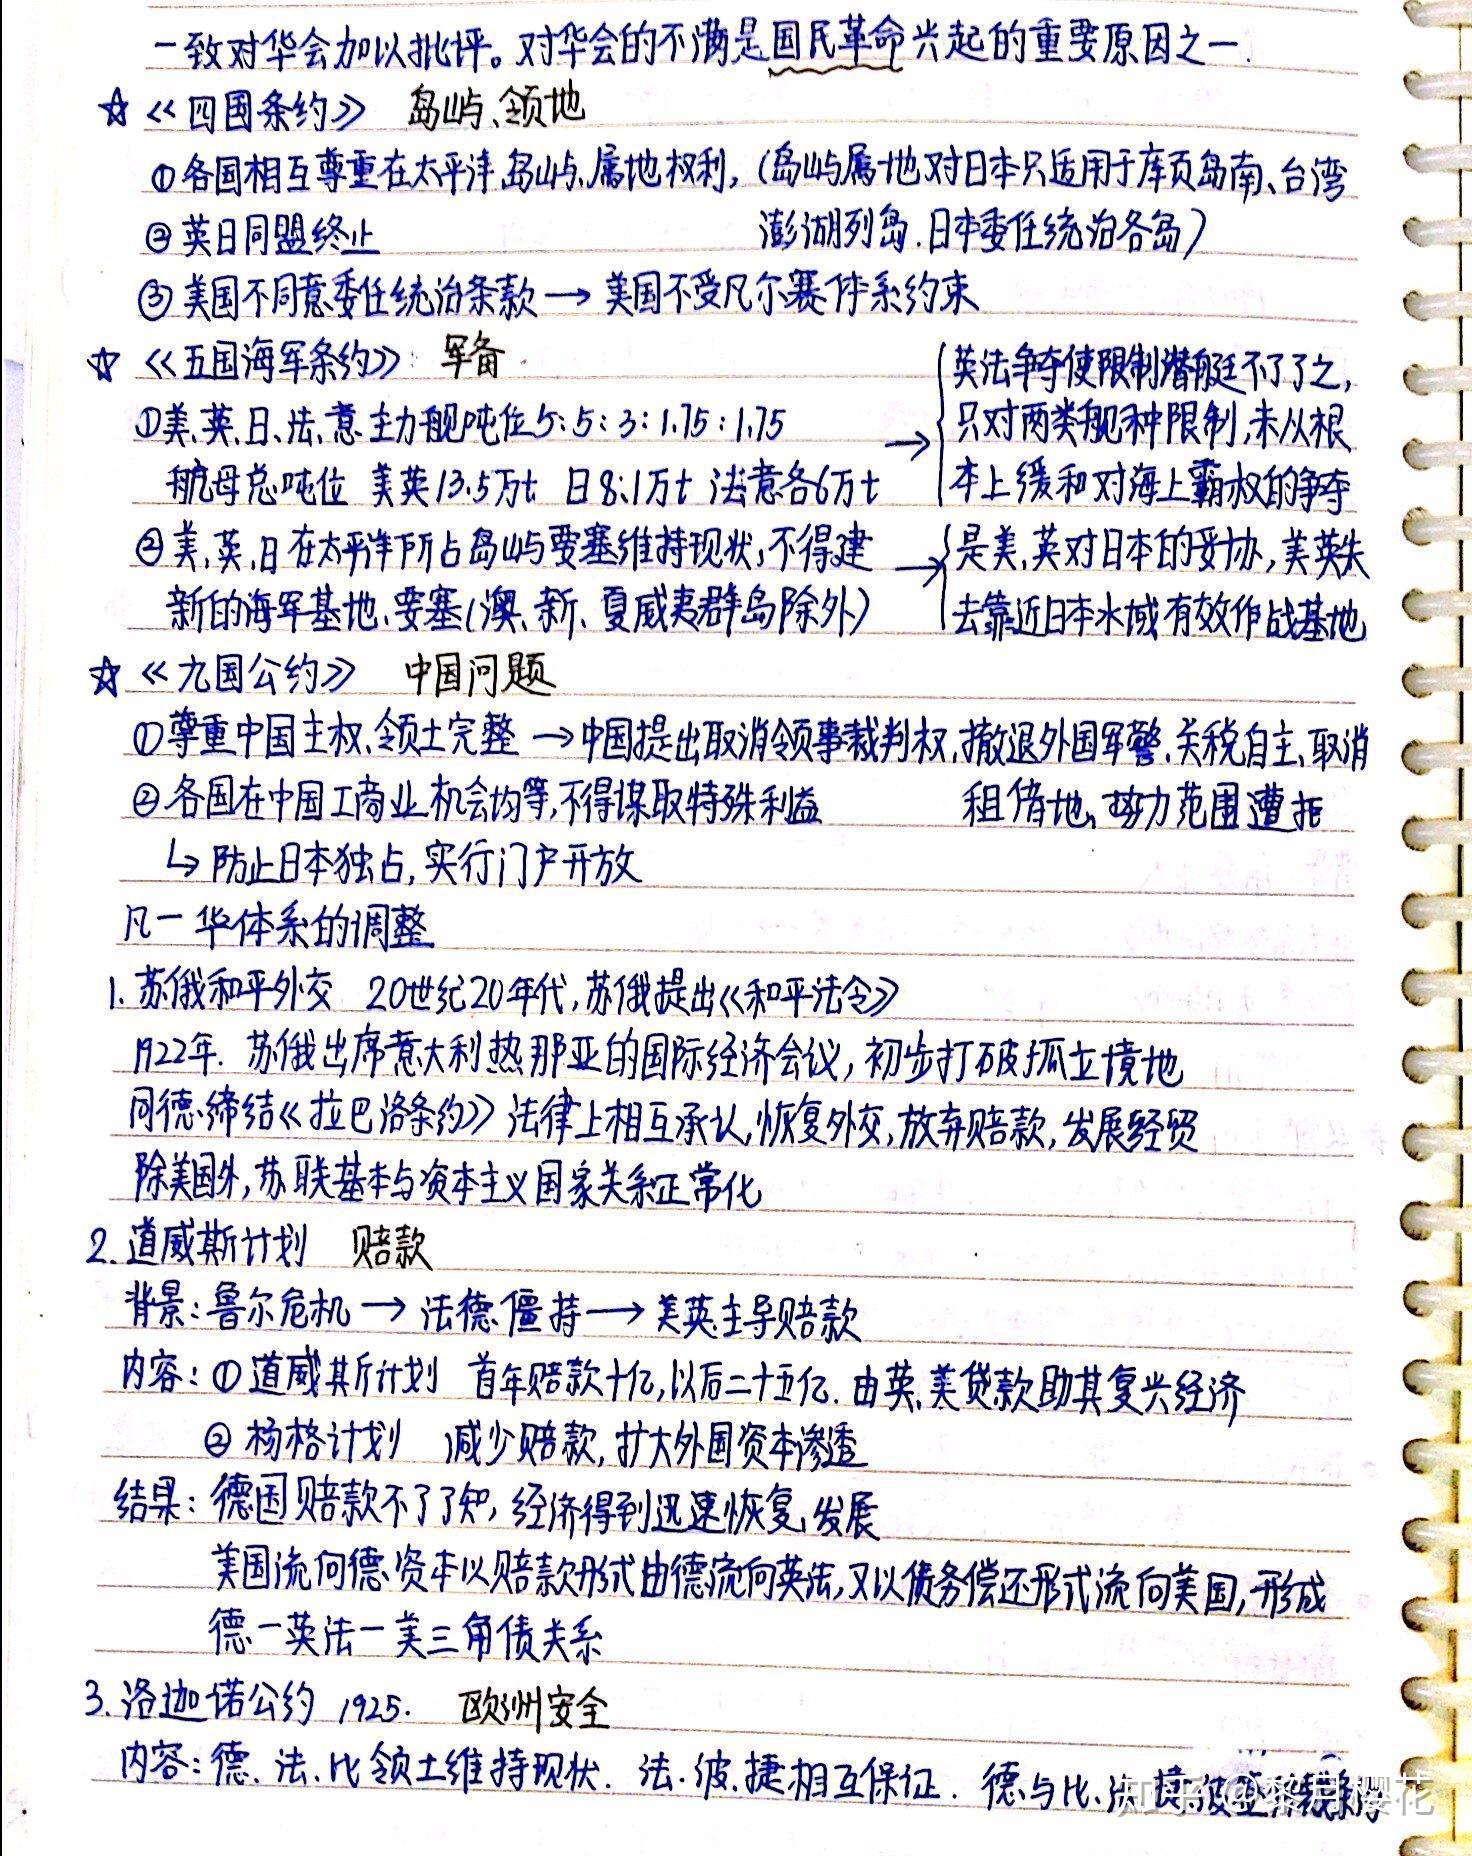 一致对华会加以批评。对华会的不满是国民革命兴起的重要原因之一.
☆《四国条约》 岛屿、领地
①各国相互尊重在太平洋岛屿、属地权利,(岛屿属地对日本只适用于库页岛南、台湾
澎湖列岛.日本委任统治各岛)
②英日同盟终止
③美国不同意委任统治条款→美国不受凡尔赛体系约束
☆《五国海军条约》 军备
①美、英、日、法、意主力舰吨位5:5:3:1.75:1.75
航母总吨位 美英13.5万t 日8.1万t 法意各6万t
→英法争夺使限制潜艇不了了之,
只对两类舰种限制,未从根
本上缓和对海上霸权的争夺
②美、英、日在太平洋所占岛屿要塞维持现状,不得建
新的海军基地、要塞(澳、新、夏威夷群岛除外)
→是美、英对日本的妥协,美英失
去靠近日本水域有效作战基地
☆《九国公约》 中国问题
①尊重中国主权、领土完整→中国提出取消领事裁判权、撤退外国军警、关税自主、取消
租借地、势力范围遭拒
②各国在中国工商业机会均等,不得谋取特殊利益
↳防止日本独占,实行门户开放
凡一华体系的调整
1.苏俄和平外交 20世纪20年代,苏俄提出《和平法令》
1922年.苏俄出席意大利热那亚的国际经济会议,初步打破孤立境地
同德缔结《拉巴洛条约》法律上相互承认,恢复外交,放弃赔款,发展经贸
除美国外,苏联基本与资本主义国家关系正常化
2.道威斯计划 赔款
背景:鲁尔危机→法德僵持→美英主导赔款
内容:①道威斯计划 首年赔款十亿,以后二十五亿.由英、美贷款助其复兴经济
②杨格计划 减少赔款,扩大外国资本渗透
结果:德国赔款不了了知,经济得到迅速恢复、发展
美国流向德资本以赔款形式由德流向英法,又以债务偿还形式流向美国,形成
德一英法一美三角债关系
3.洛迦诺公约 1925. 欧洲安全
内容:德、法、比领土维持现状.法、波、捷相互保证.德与比、法、捷、波
知乎 @黎月樱花